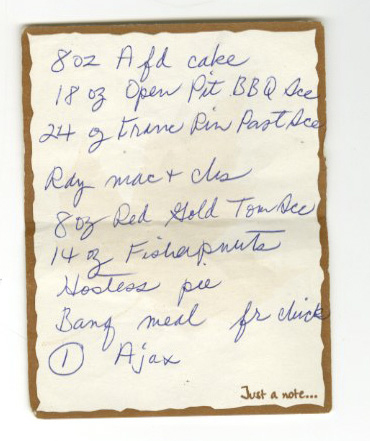 8oz A fd cake
18 oz Open Pit BBQ Sce
24 oz Franc Rin Past Sce
Ray mac + chs
8oz Red Gold Tom Sce
14 oz Fisher pnuts
Hostess pie
Banq meal fr chick
1 Ajax
Just a note...